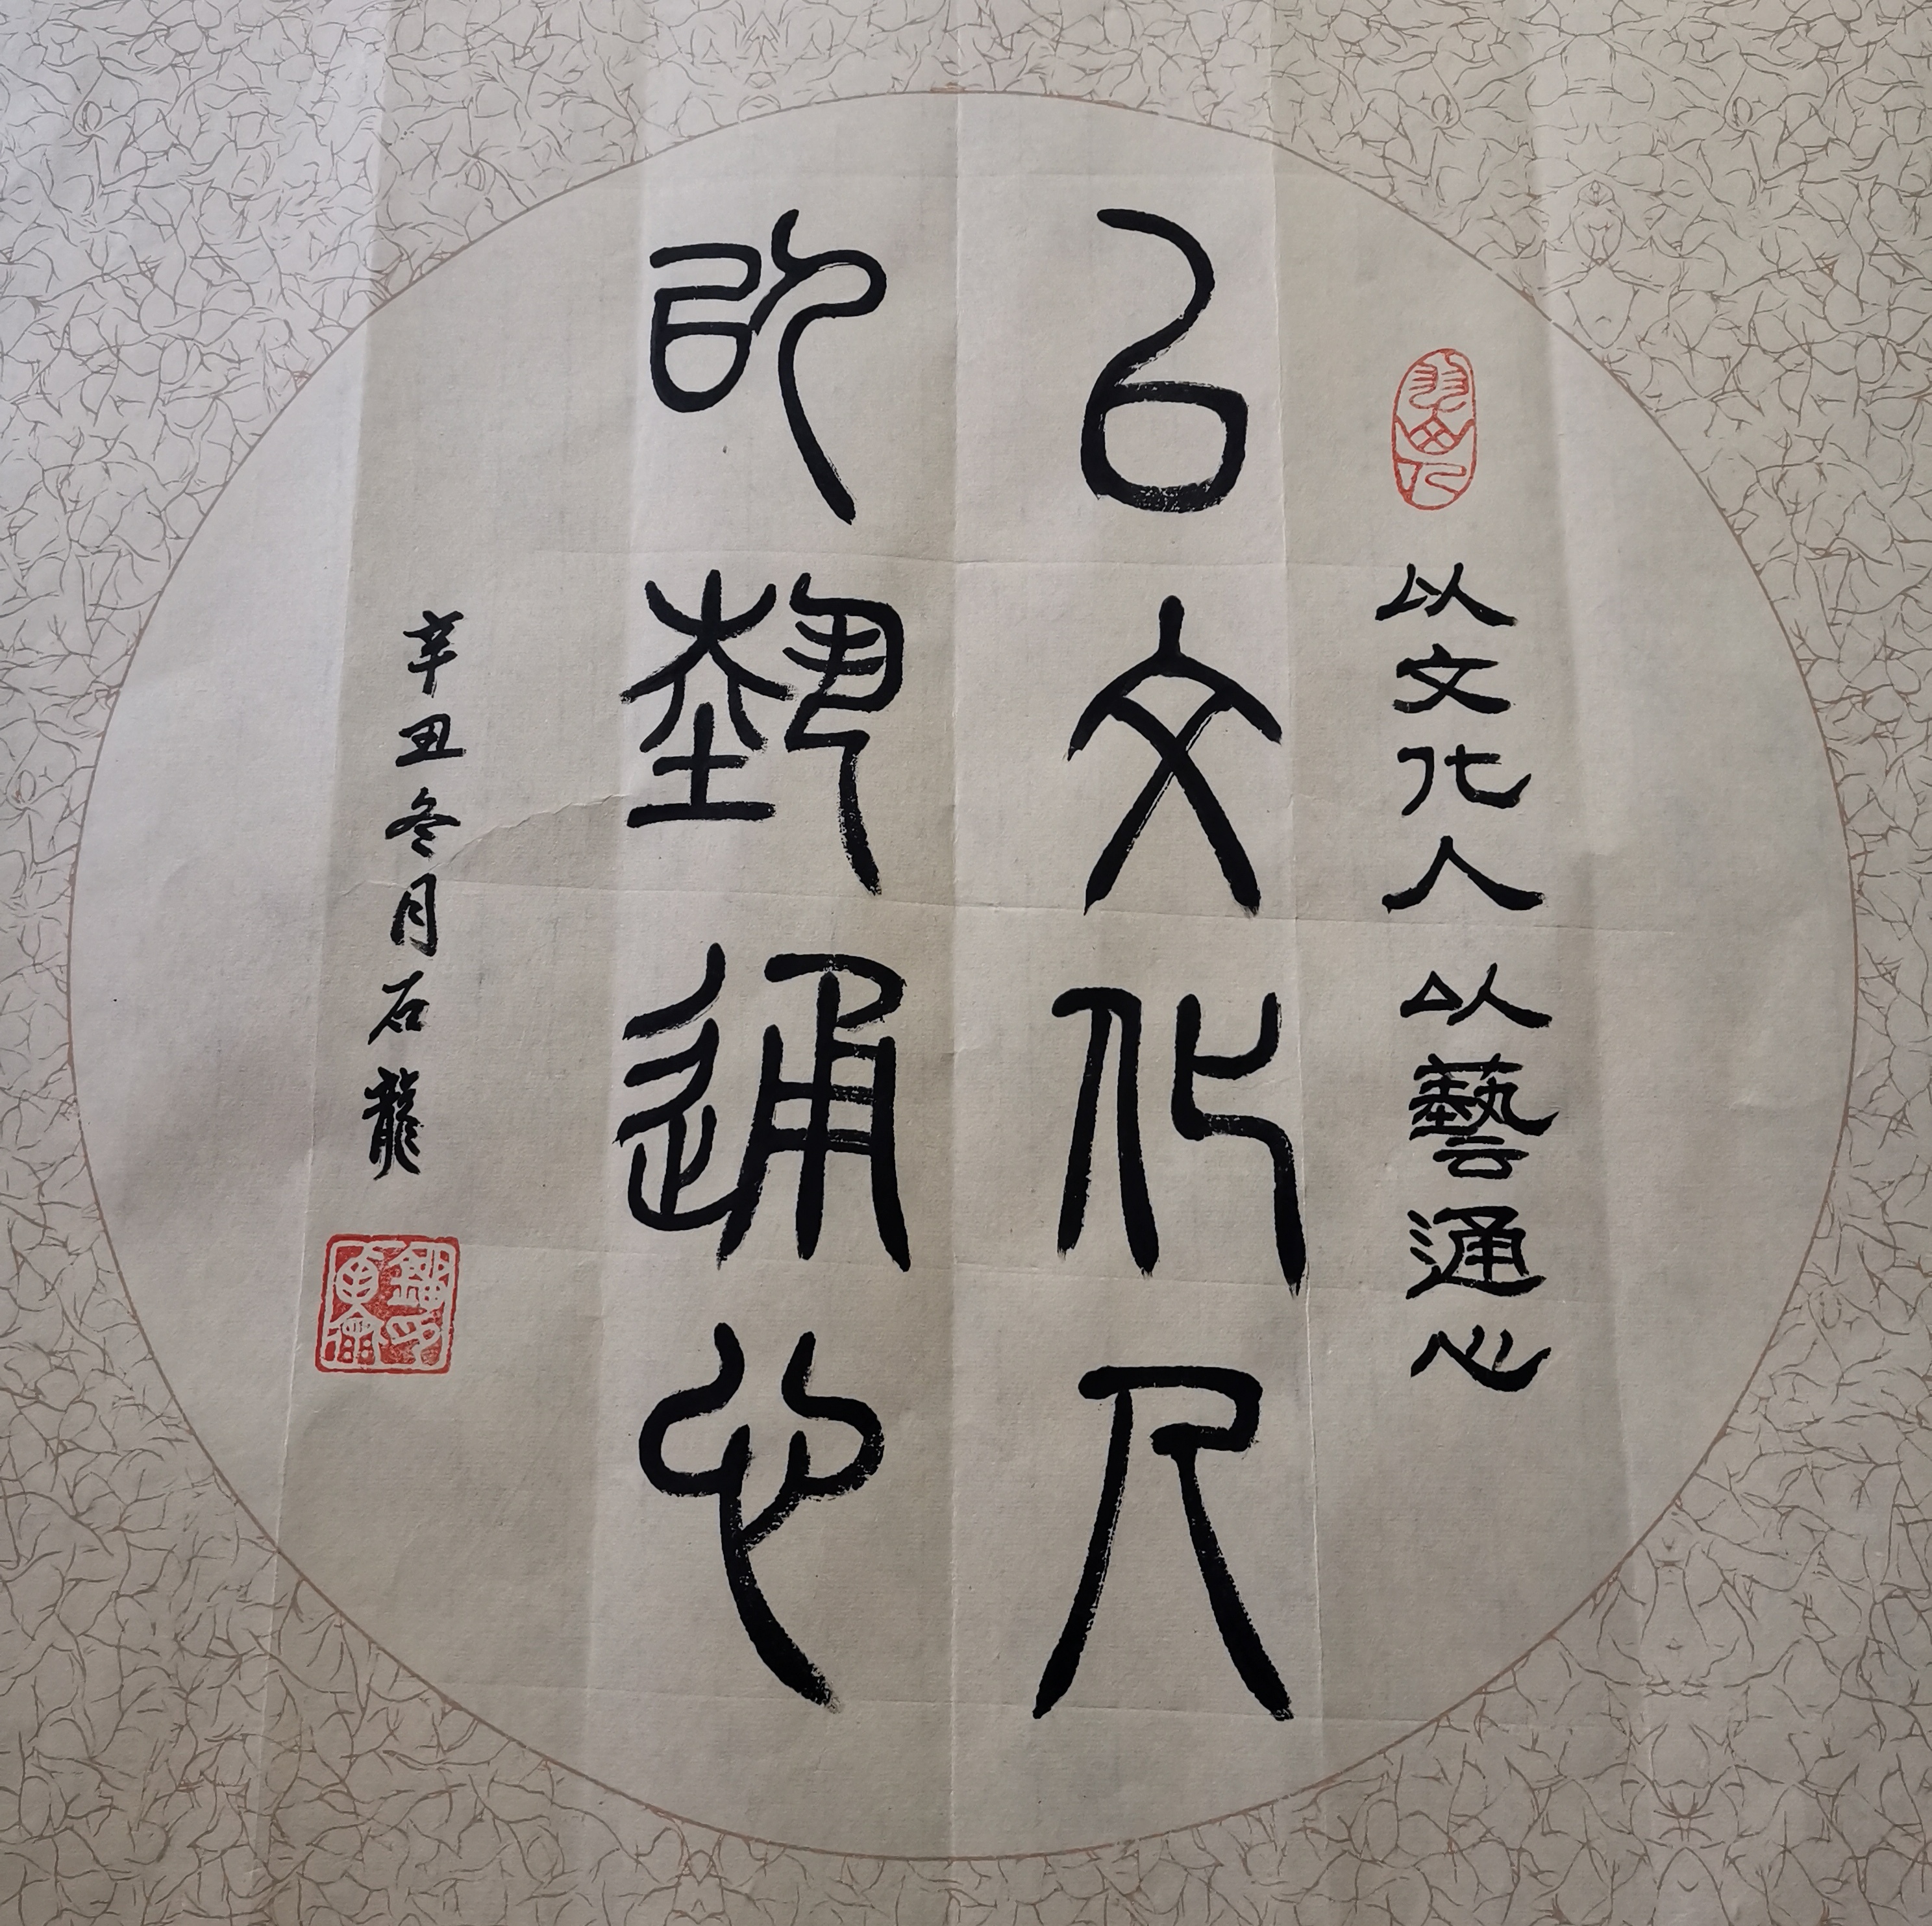 以文化人以藝通心
以文化人
以藝通心
辛丑冬月石龍